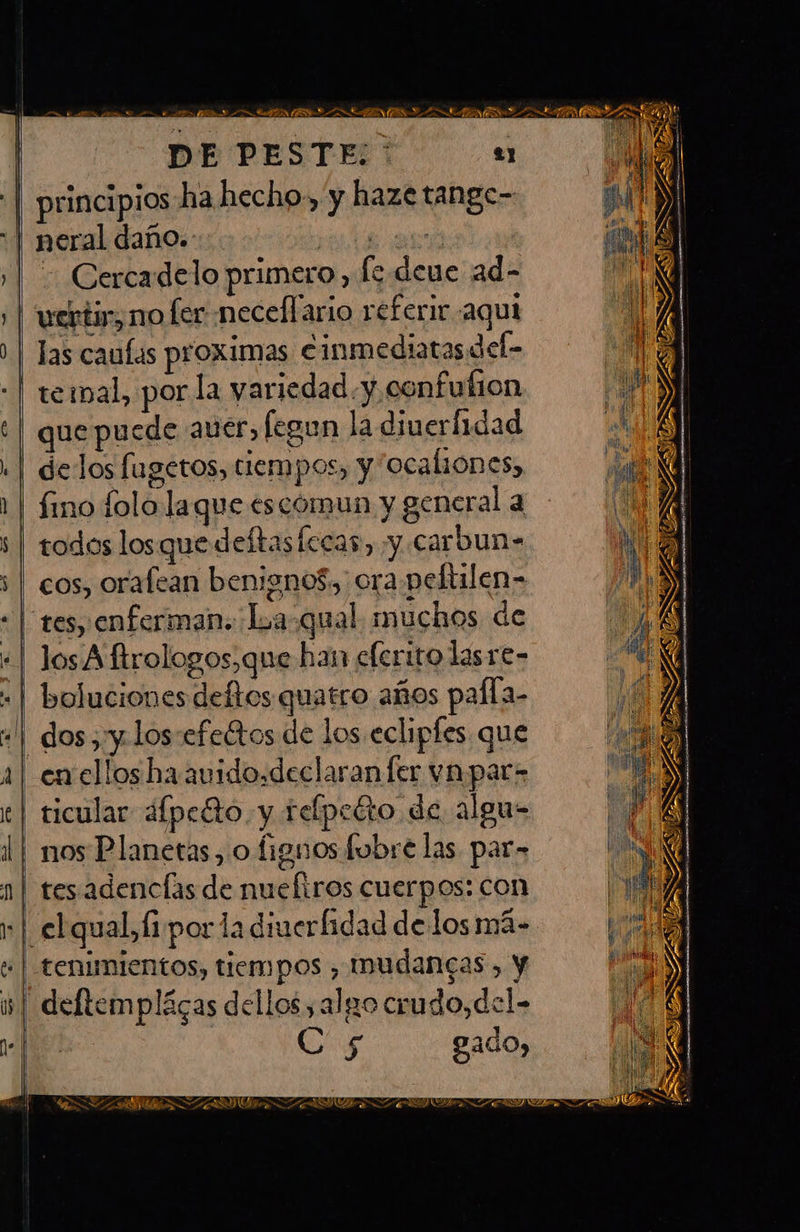 DE PESTE. 21
principios ha hecho, y haze tan ge-
neral daño.
Cerca de lo primero, ſe deue ad-
uertir, no ſer neceſſario referir aqui
las cauſas proximas e inmediatas deſ-
te mal, por la variedad y confuſion
que puede auer, ſegun la diuerſidad
de los ſugetos, tiempos, y ocaſiones,
ſino ſolo la que es comun y general a
todos los que deſtas ſecas, y carbun-
cos, ora ſean benignos, ora peſtilen-
tes, enferman. La qual muchos de
los Aſtrologos, que han eſcrito las re-
boluciones deſtos quatro años paſſa-
dos, y los efectos de los eclipſes que
en ellos ha auido, declaran ſer vn par-
ticular aſpecto y reſpecto de algu-
nos Planetas, o ſignos ſobre las par-
tes adencſas de nueſtros cuerpos: con
el qual, ſi por la diuerſidad de los mã-
tenimientos, tiempos, mudanças, y
deſtemplãças dellos, algo crudo, del-
C 5 gado,